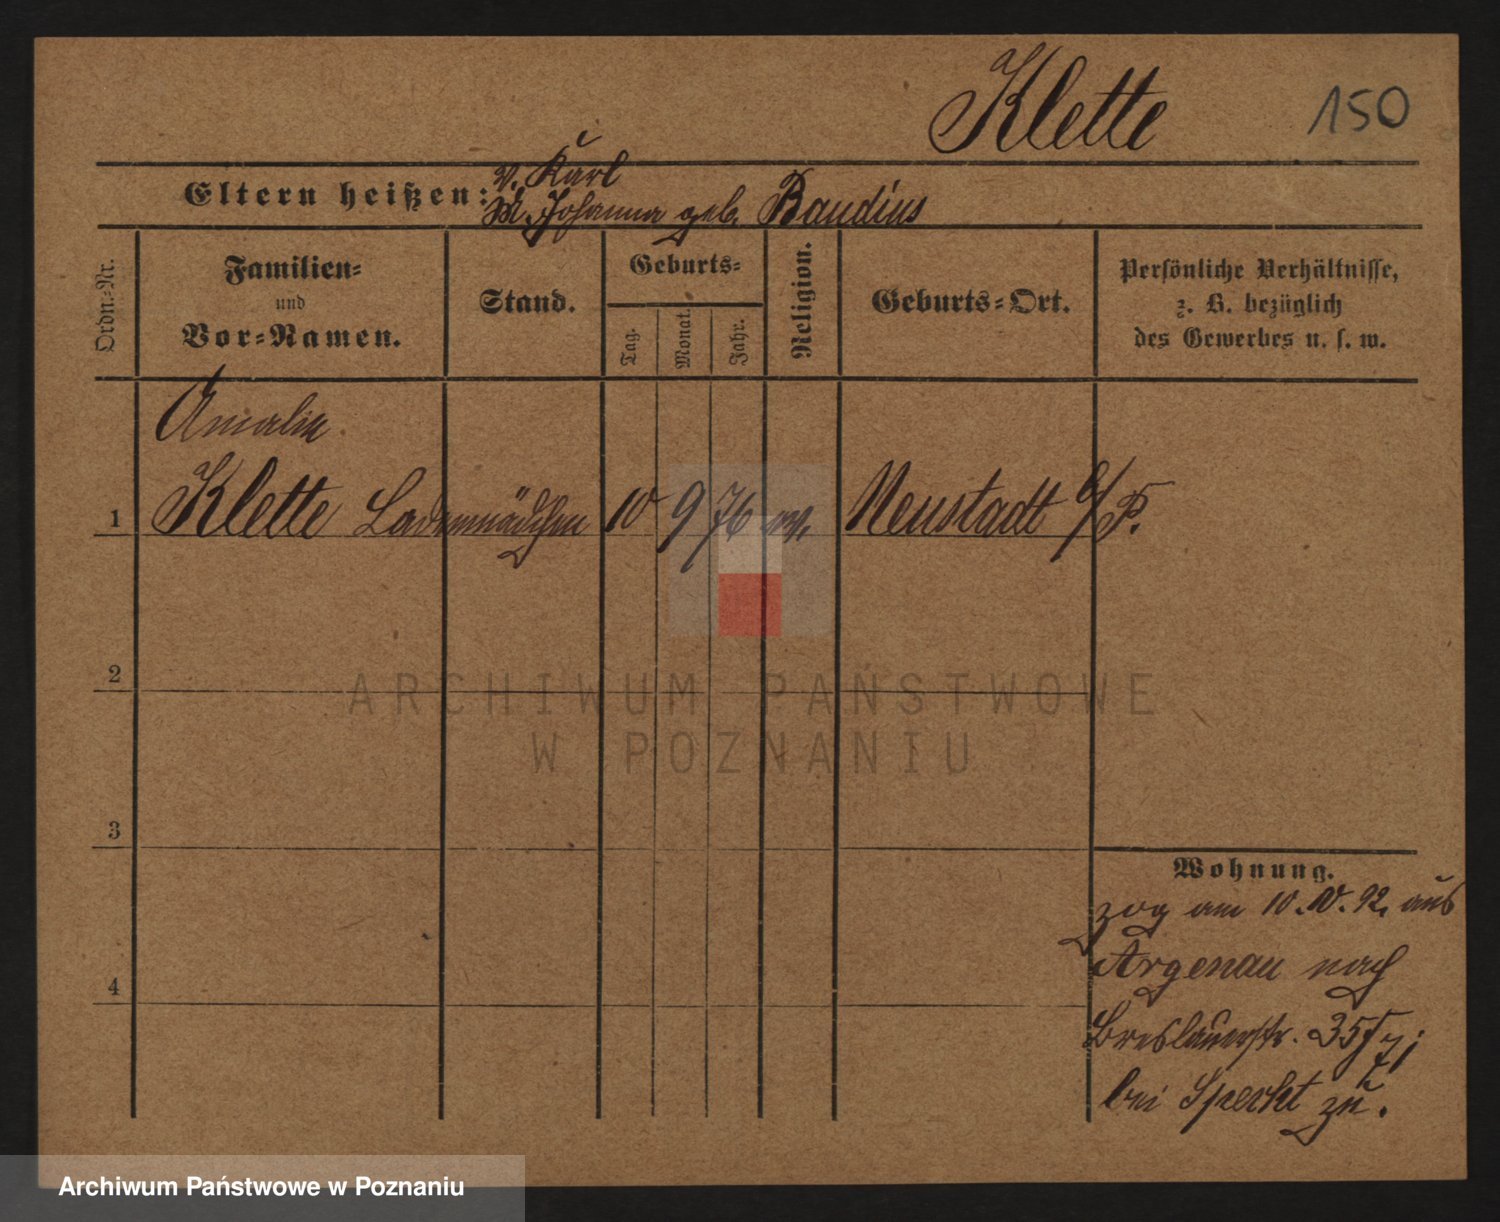 Klette
150
Eltern heißen:
V. Karl
M. Johanna geb. Baudius
Ordn.=Nr.
Familien=
und
Vor=Namen.
Stand.
Geburts=
Tag.
Monat.
Jahr.
Religion.
Geburts=Ort.
Persönliche Verhältnisse,
z. B. bezüglich
des Gewerbes u. s. w.
Amalie
1 Klette Ladenmädchen 10 9 76 ev. Neustadt b/P.
2
3
4
Wohnung.
zog am 10. IV. 92. aus
Argenau nach
Breslauerstr. 35
bei Specht zu.
ARCHIWUM PAŃSTWOWE
W POZNANIU
Archiwum Państwowe w Poznaniu